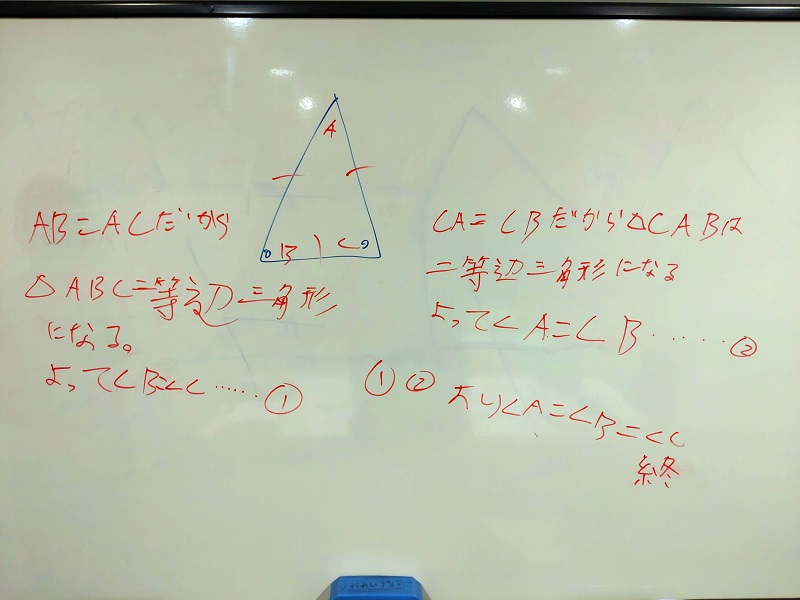 A
B
C
AB=ACだから
△ABC二等辺三角形
になる。
よって∠B=∠C……①
CA=CBだから△CABは
二等辺三角形になる
よって∠A=∠B……②
①②より∠A=∠B=∠C
終